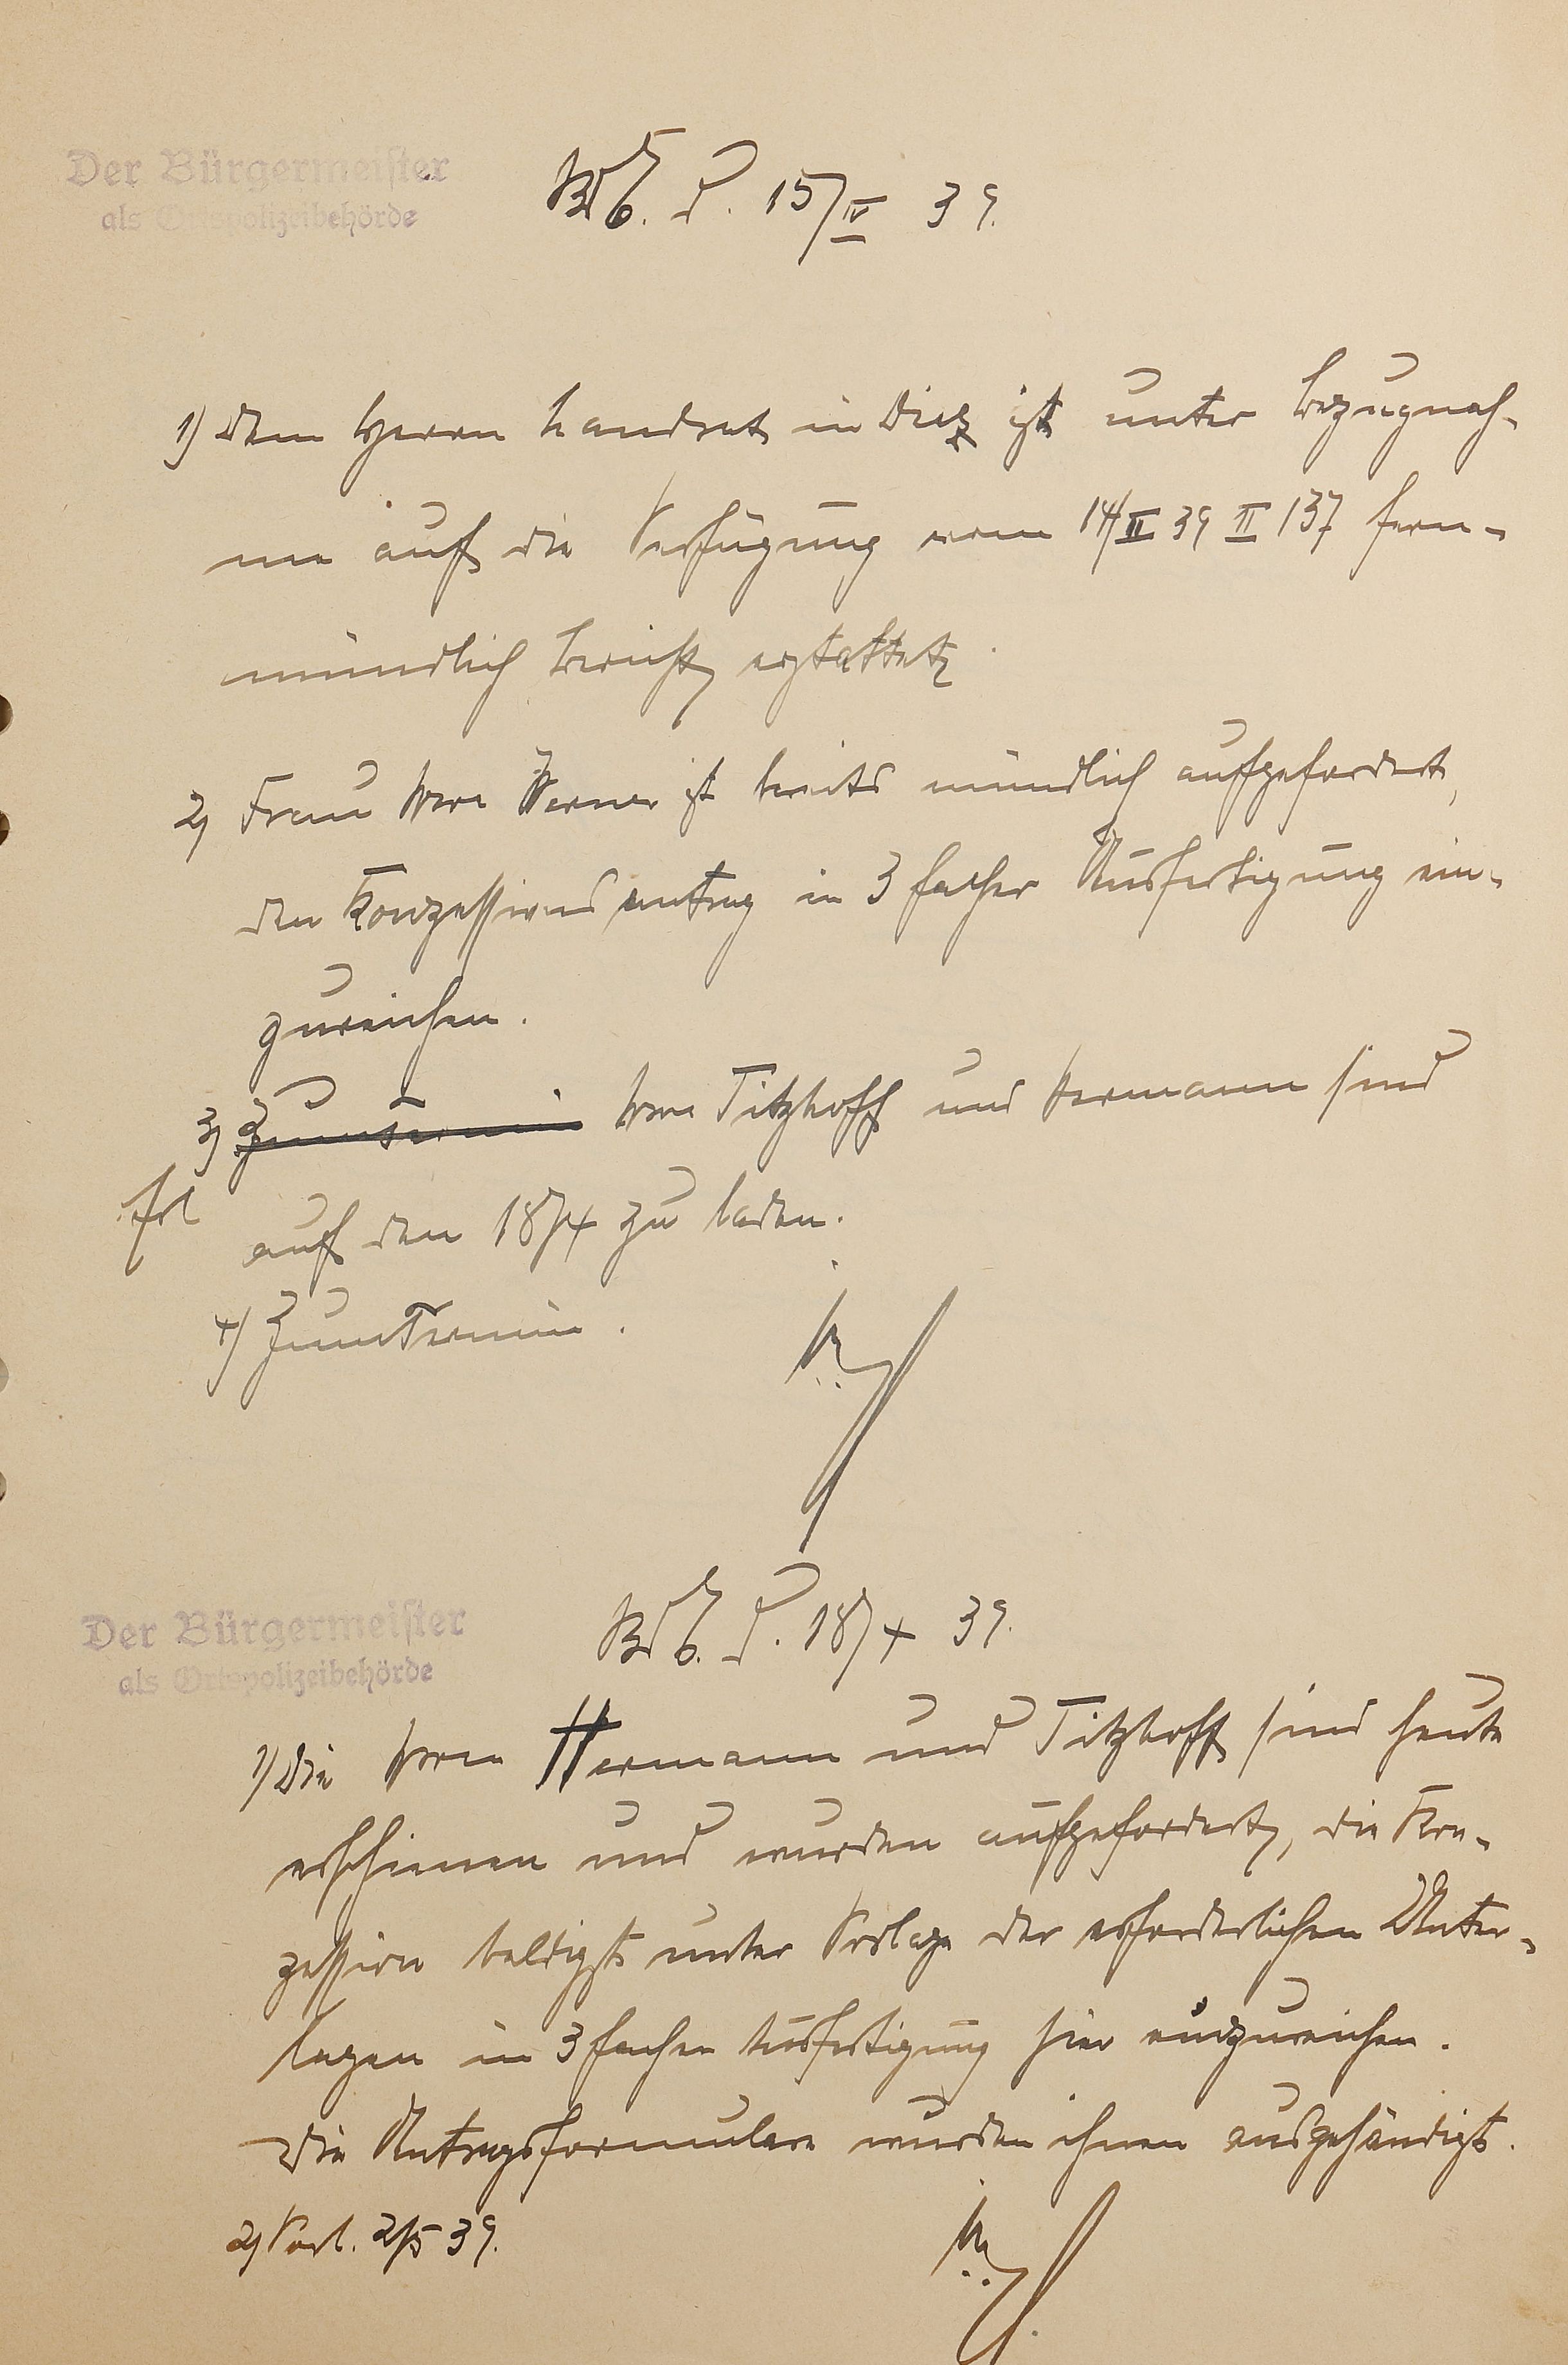 Der Bürgermeister
als Ortspolizeibehörde
d. 15/IV 39.
1) Dem Herrn Landrat in Diez ist unter Bezugnah-
me auf die Verfügung vom 14/II 39 II 137 fern-
mündlich Bericht erstattet.
2) Frau Werner ist bereits mündlich aufgefordert,
den Konzessionsantrag in 3 facher Ausfertigung ein-
zureichen.
3) Zum Termin Titzhoff und Hermann sind
auf den 18/4 zu laden.
4) Zum Termin.
Der Bürgermeister
als Ortspolizeibehörde
d. 18/4 39.
1) Die Hermann und Titzhoff sind heute
erschienen und wurden aufgefordert, die Kon-
zession baldigst unter Vorlage der erforderlichen Unter-
lagen in 3 facher Ausfertigung hier einzureichen.
Die Antragsformulare wurden ihnen ausgehändigt.
2) Vorl. 2/5 39.